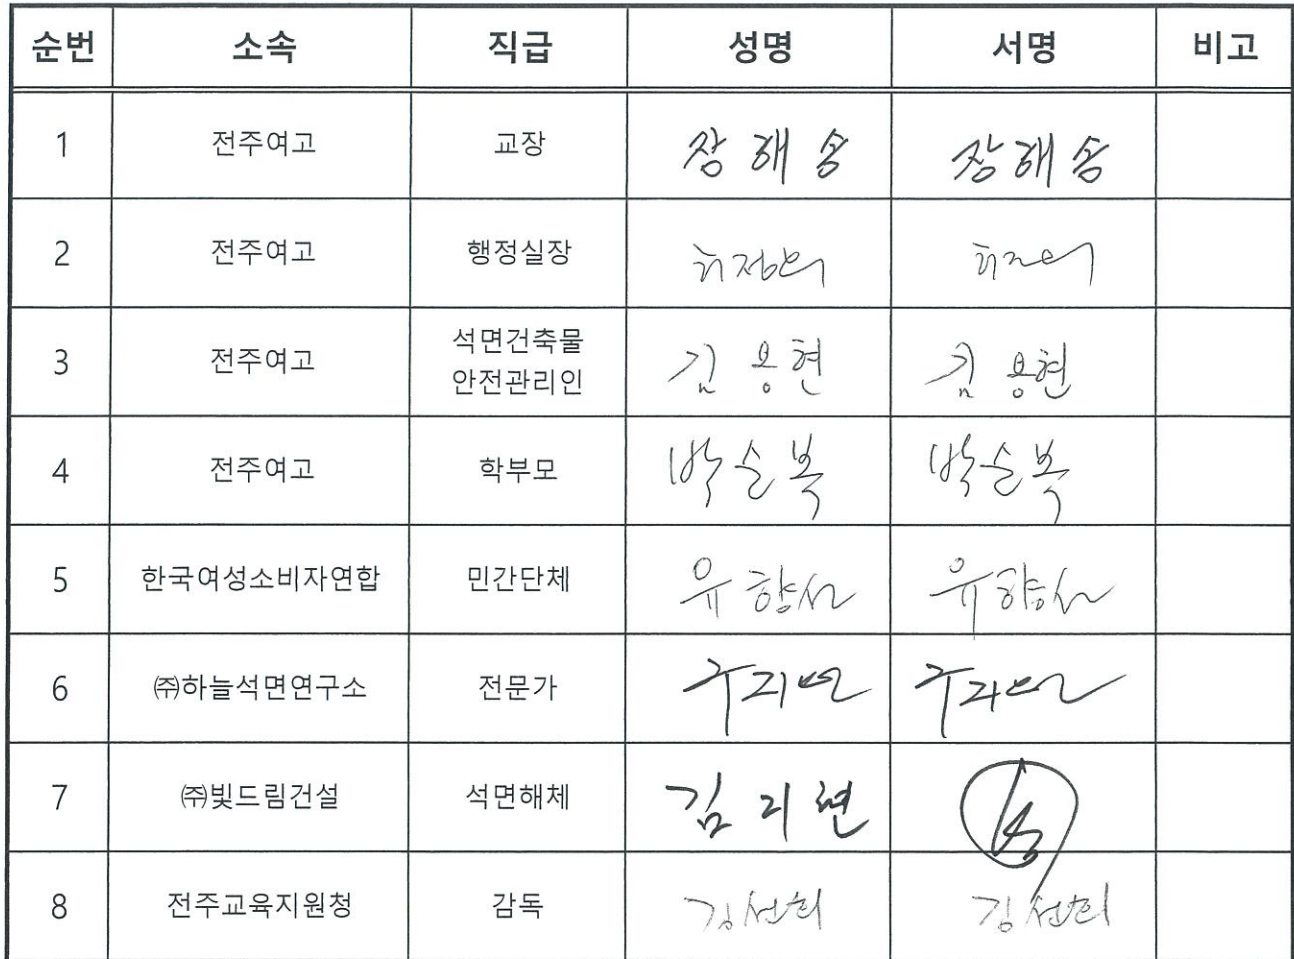 순번 소속 직급 성명 서명 비고
1 전주여고 교장 장해송 장해송
2 전주여고 행정실장
3 전주여고 석면건축물 김용현 김용현
안전관리인
4 전주여고 학부모 박순복 박순복
5 한국여성소비자연합 민간단체 유향선 유향선
6 ㈜하늘석면연구소 전문가
7 ㈜빛드림건설 석면해체 김지현
8 전주교육지원청 감독 김선희 김선희